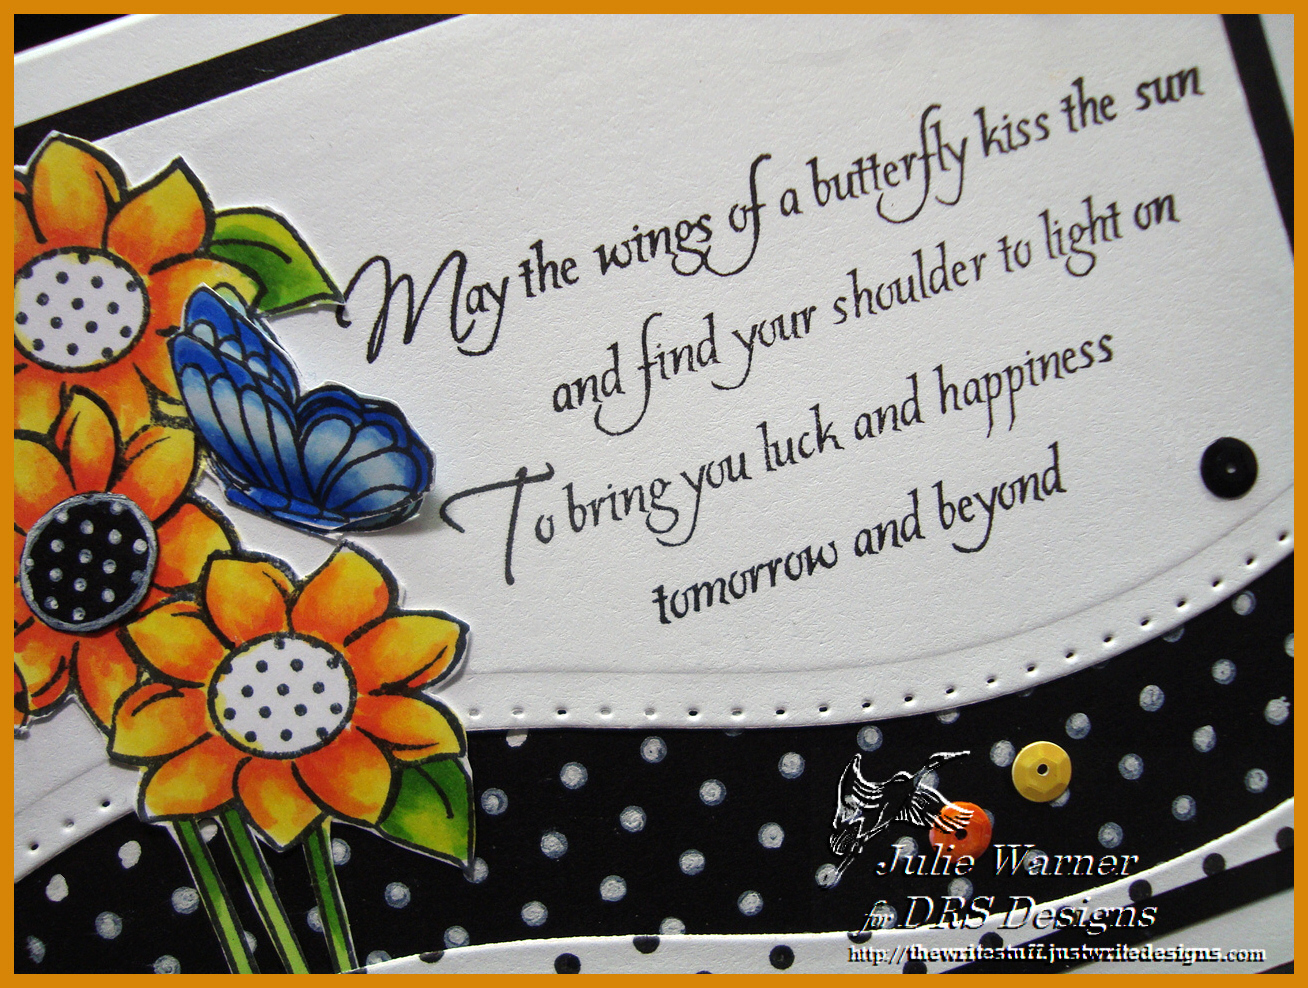 May the wings of a butterfly kiss the sun
and find your shoulder to light on
To bring you luck and happiness
tomorrow and beyond
Julie Warner
for DRS Designs
http://thewritestuff.justwritedesigns.com